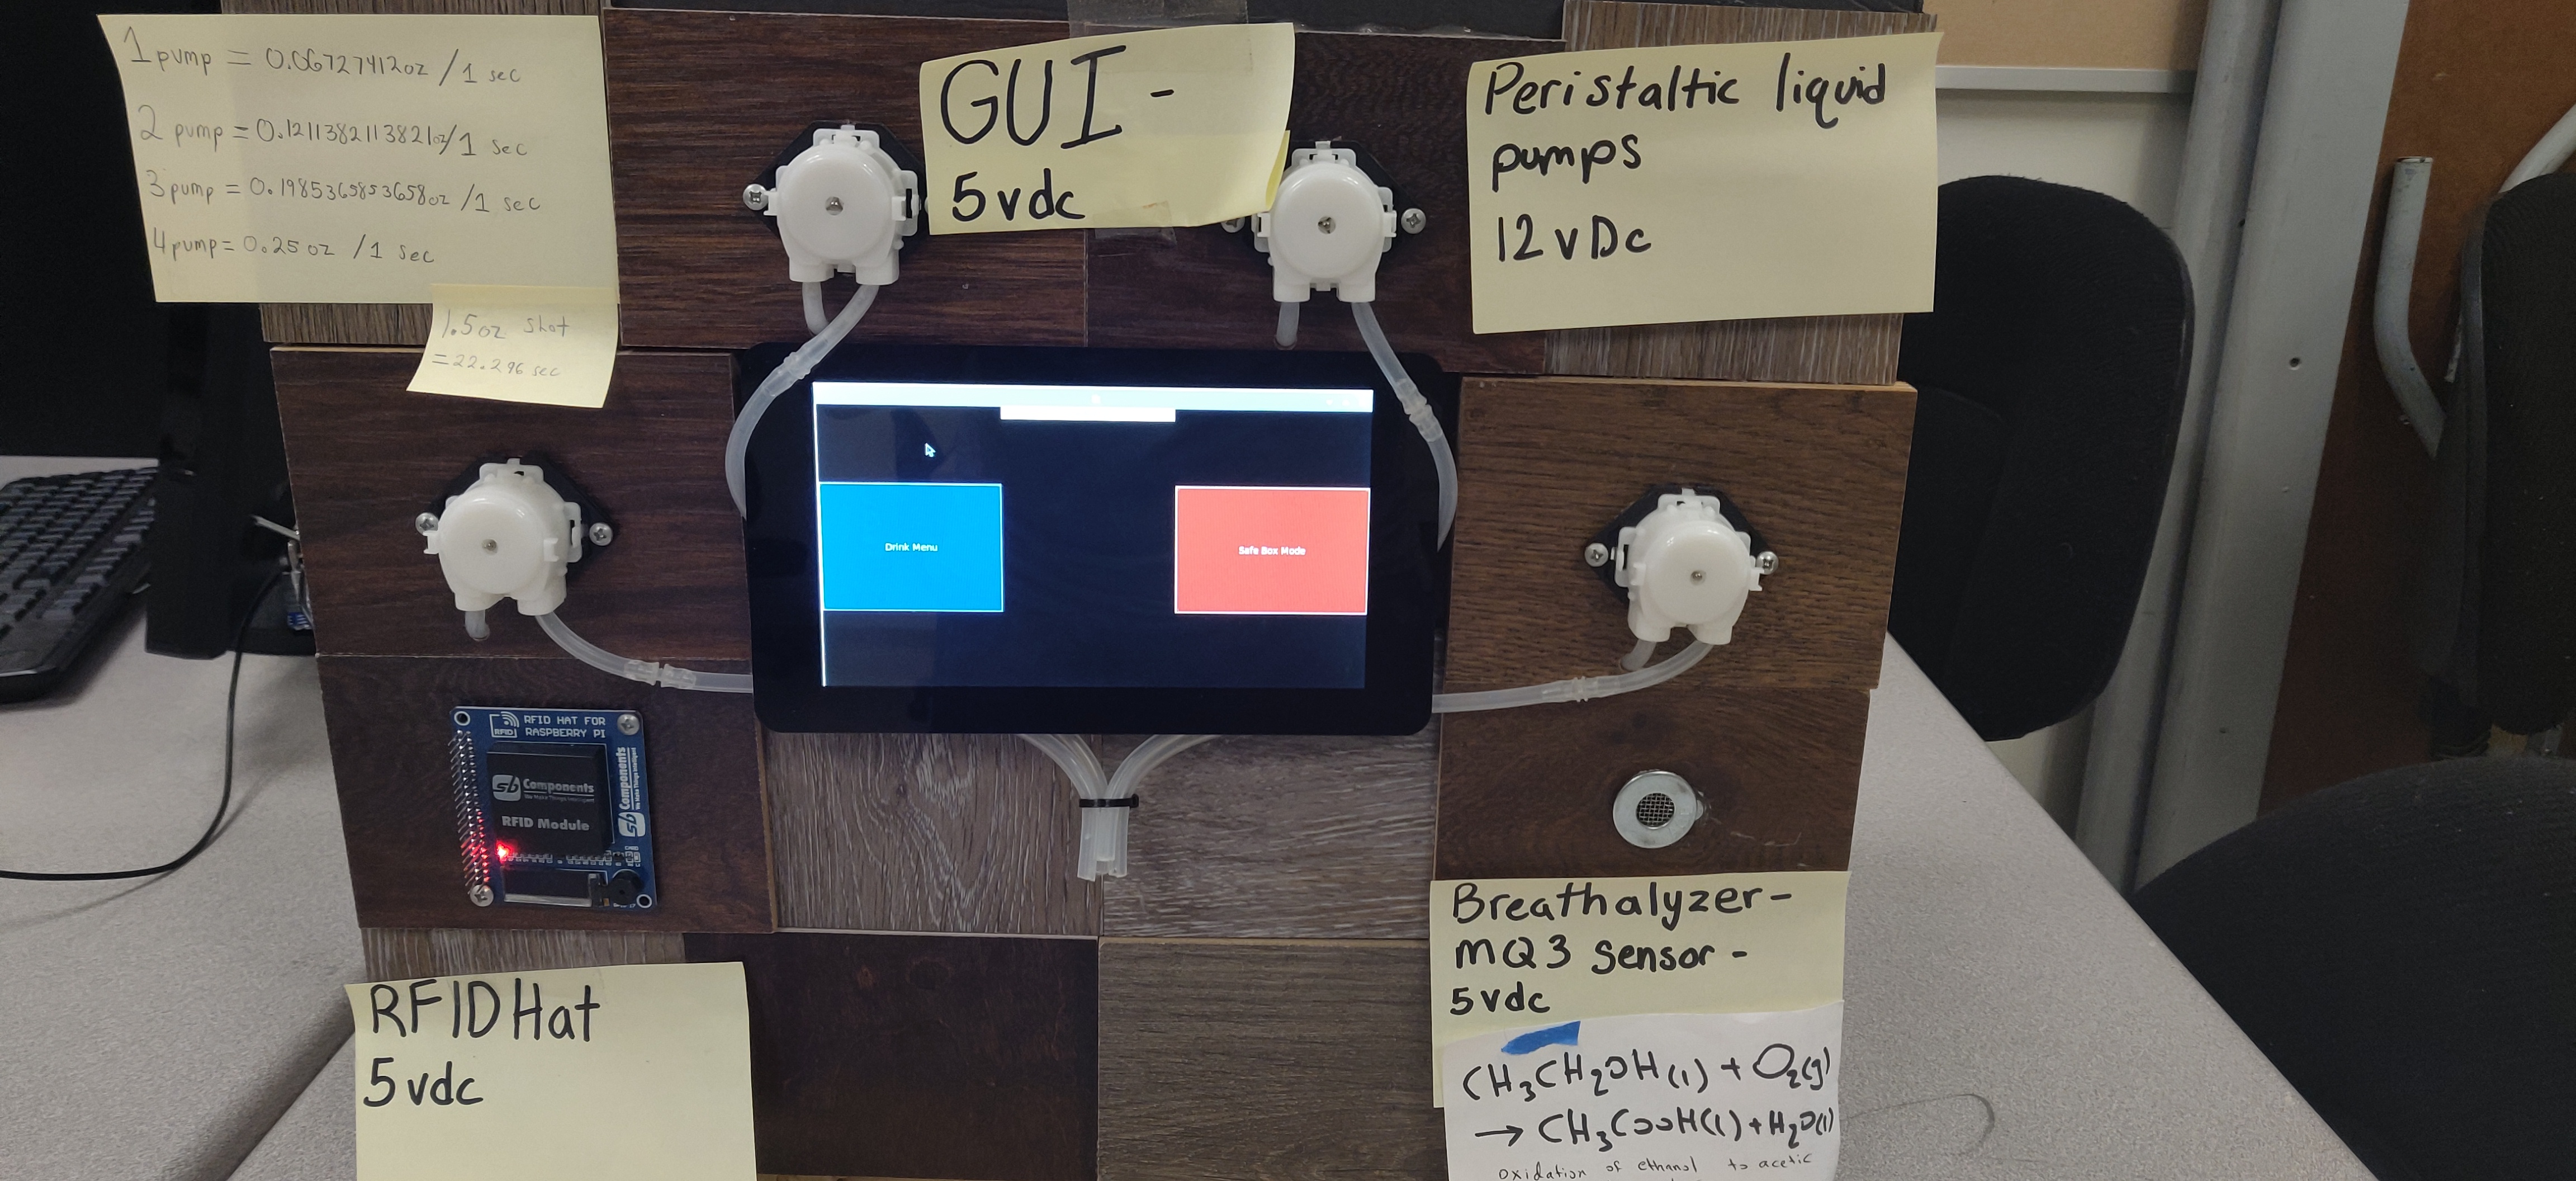 1 pump = 0.06727412oz / 1 sec
2 pump = 0.12113821138210z/1 sec
3 pump = 0.1985365853658oz /1 sec
4 pump = 0.25 oz / 1 sec
1.5oz shot
= 22.296 sec
GUI -
5vdc
Peristaltic liquid
pumps
12 vDc
Drink Menu
Safe Box Mode
RFID HAT FOR
RASPBERRY PI
RFID
sb Components
We Make Things Intelligent
RFID Module
sb Components
We Make Things Intelligent
RFID Hat
5vdc
Breathalyzer-
MQ3 sensor-
5vdc
CH₃CH₂OH(l) + O₂(g)
→ CH₃COOH(l) + H₂O(l)
oxidation of ethanol to acetic